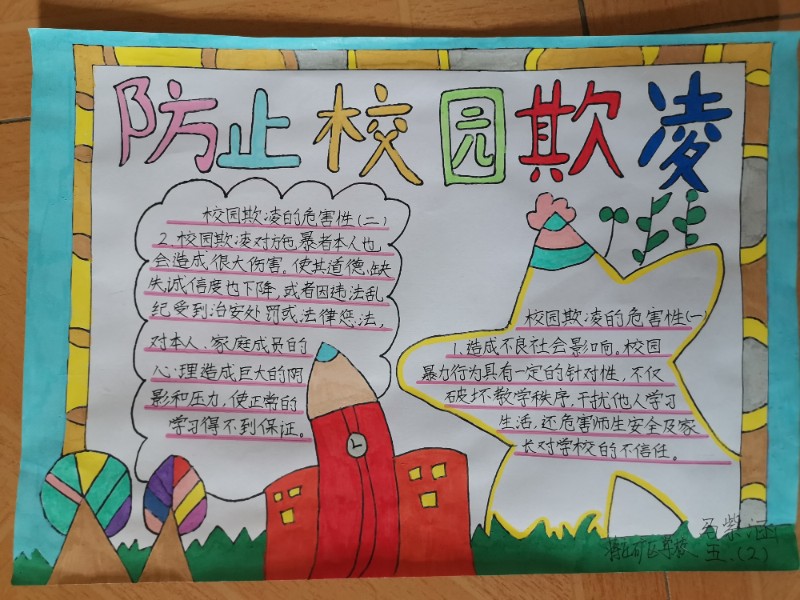 防止校园欺凌
校园欺凌的危害性(二)
2.校园欺凌对施暴者本人也
会造成很大伤害。使其道德缺
失,诚信度也下降,或者因违法乱
纪受到治安处罚或法律惩法,
对本人、家庭成员的
心理造成巨大的阴
影和压力,使正常的
学习得不到保证。
校园欺凌的危害性(一)
1.造成不良社会影响。校园
暴力行为具有一定的针对性,不仅
破坏教学秩序,干扰他人学习
生活,还危害师生安全及家
长对学校的不信任。
紫涵
矿区学校
五.(2)